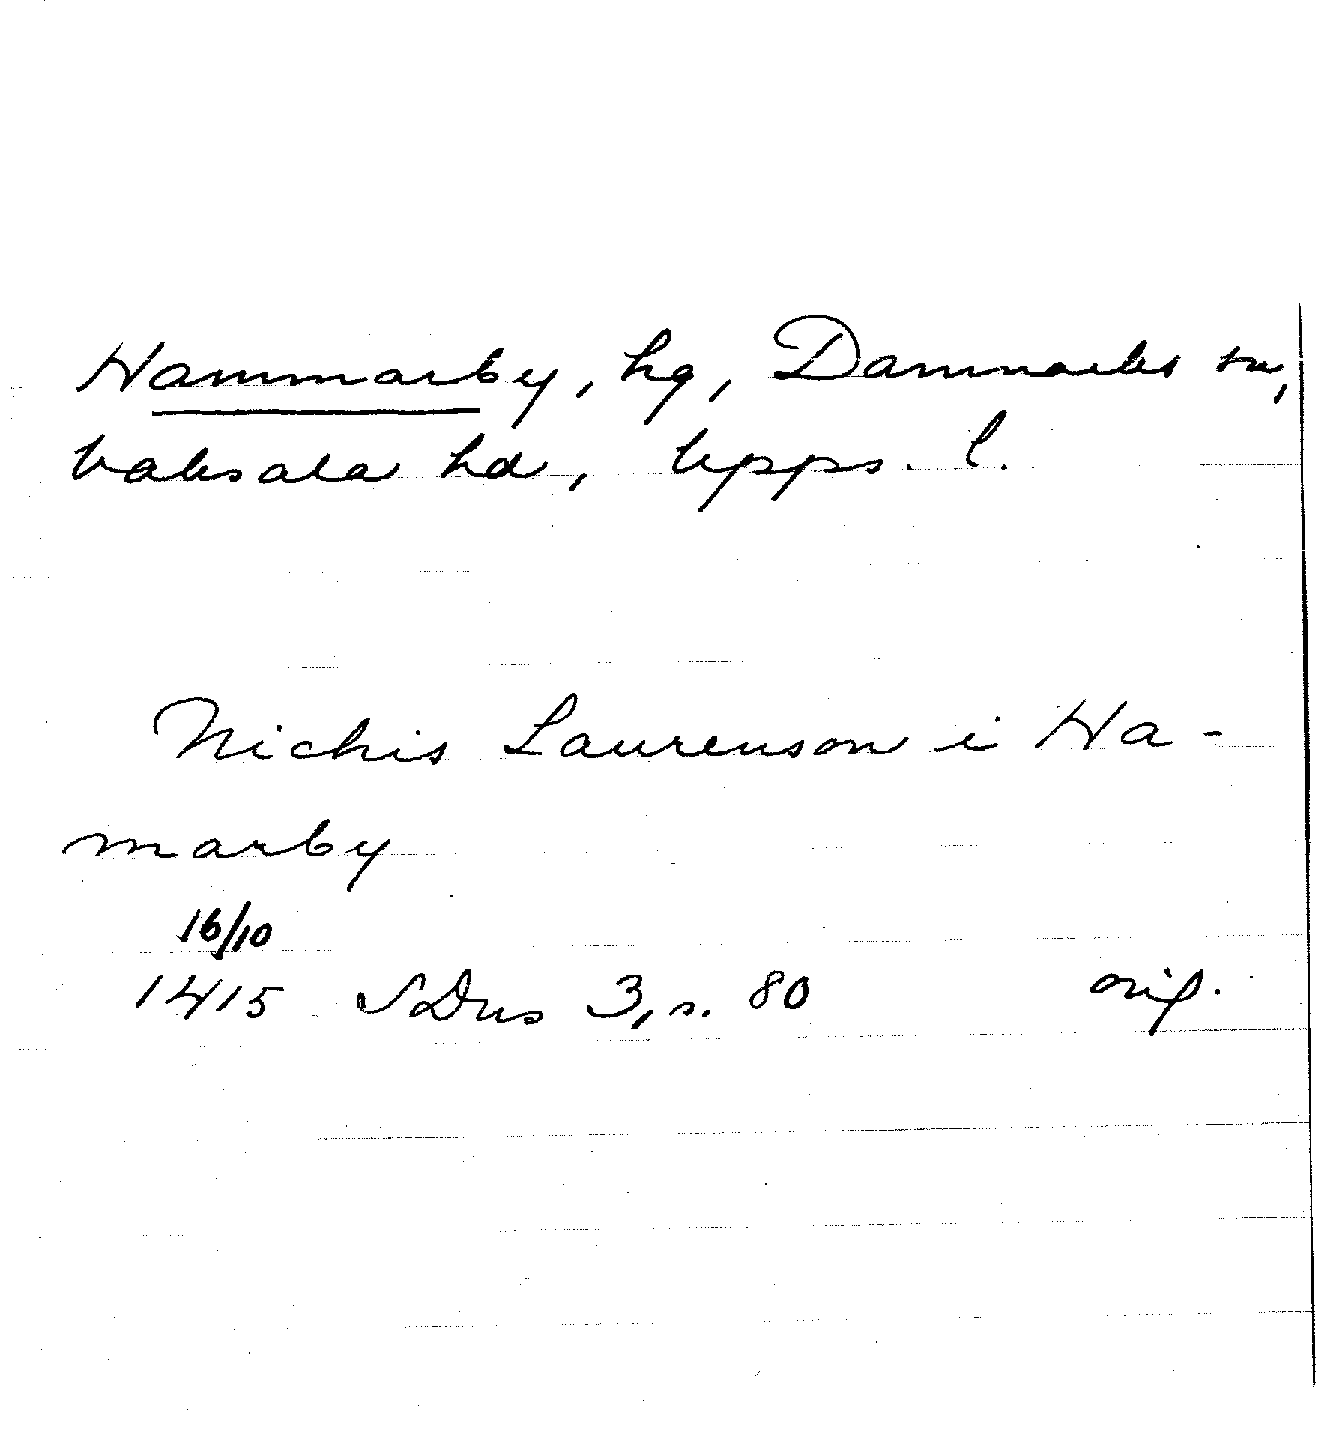 Hammarby, hg, Danmarks sn,
Vaksala hd, Upps. l.
Nichis Laurenson i Ha-
marby
16/10
1415 SDns 3, s. 80 orig.